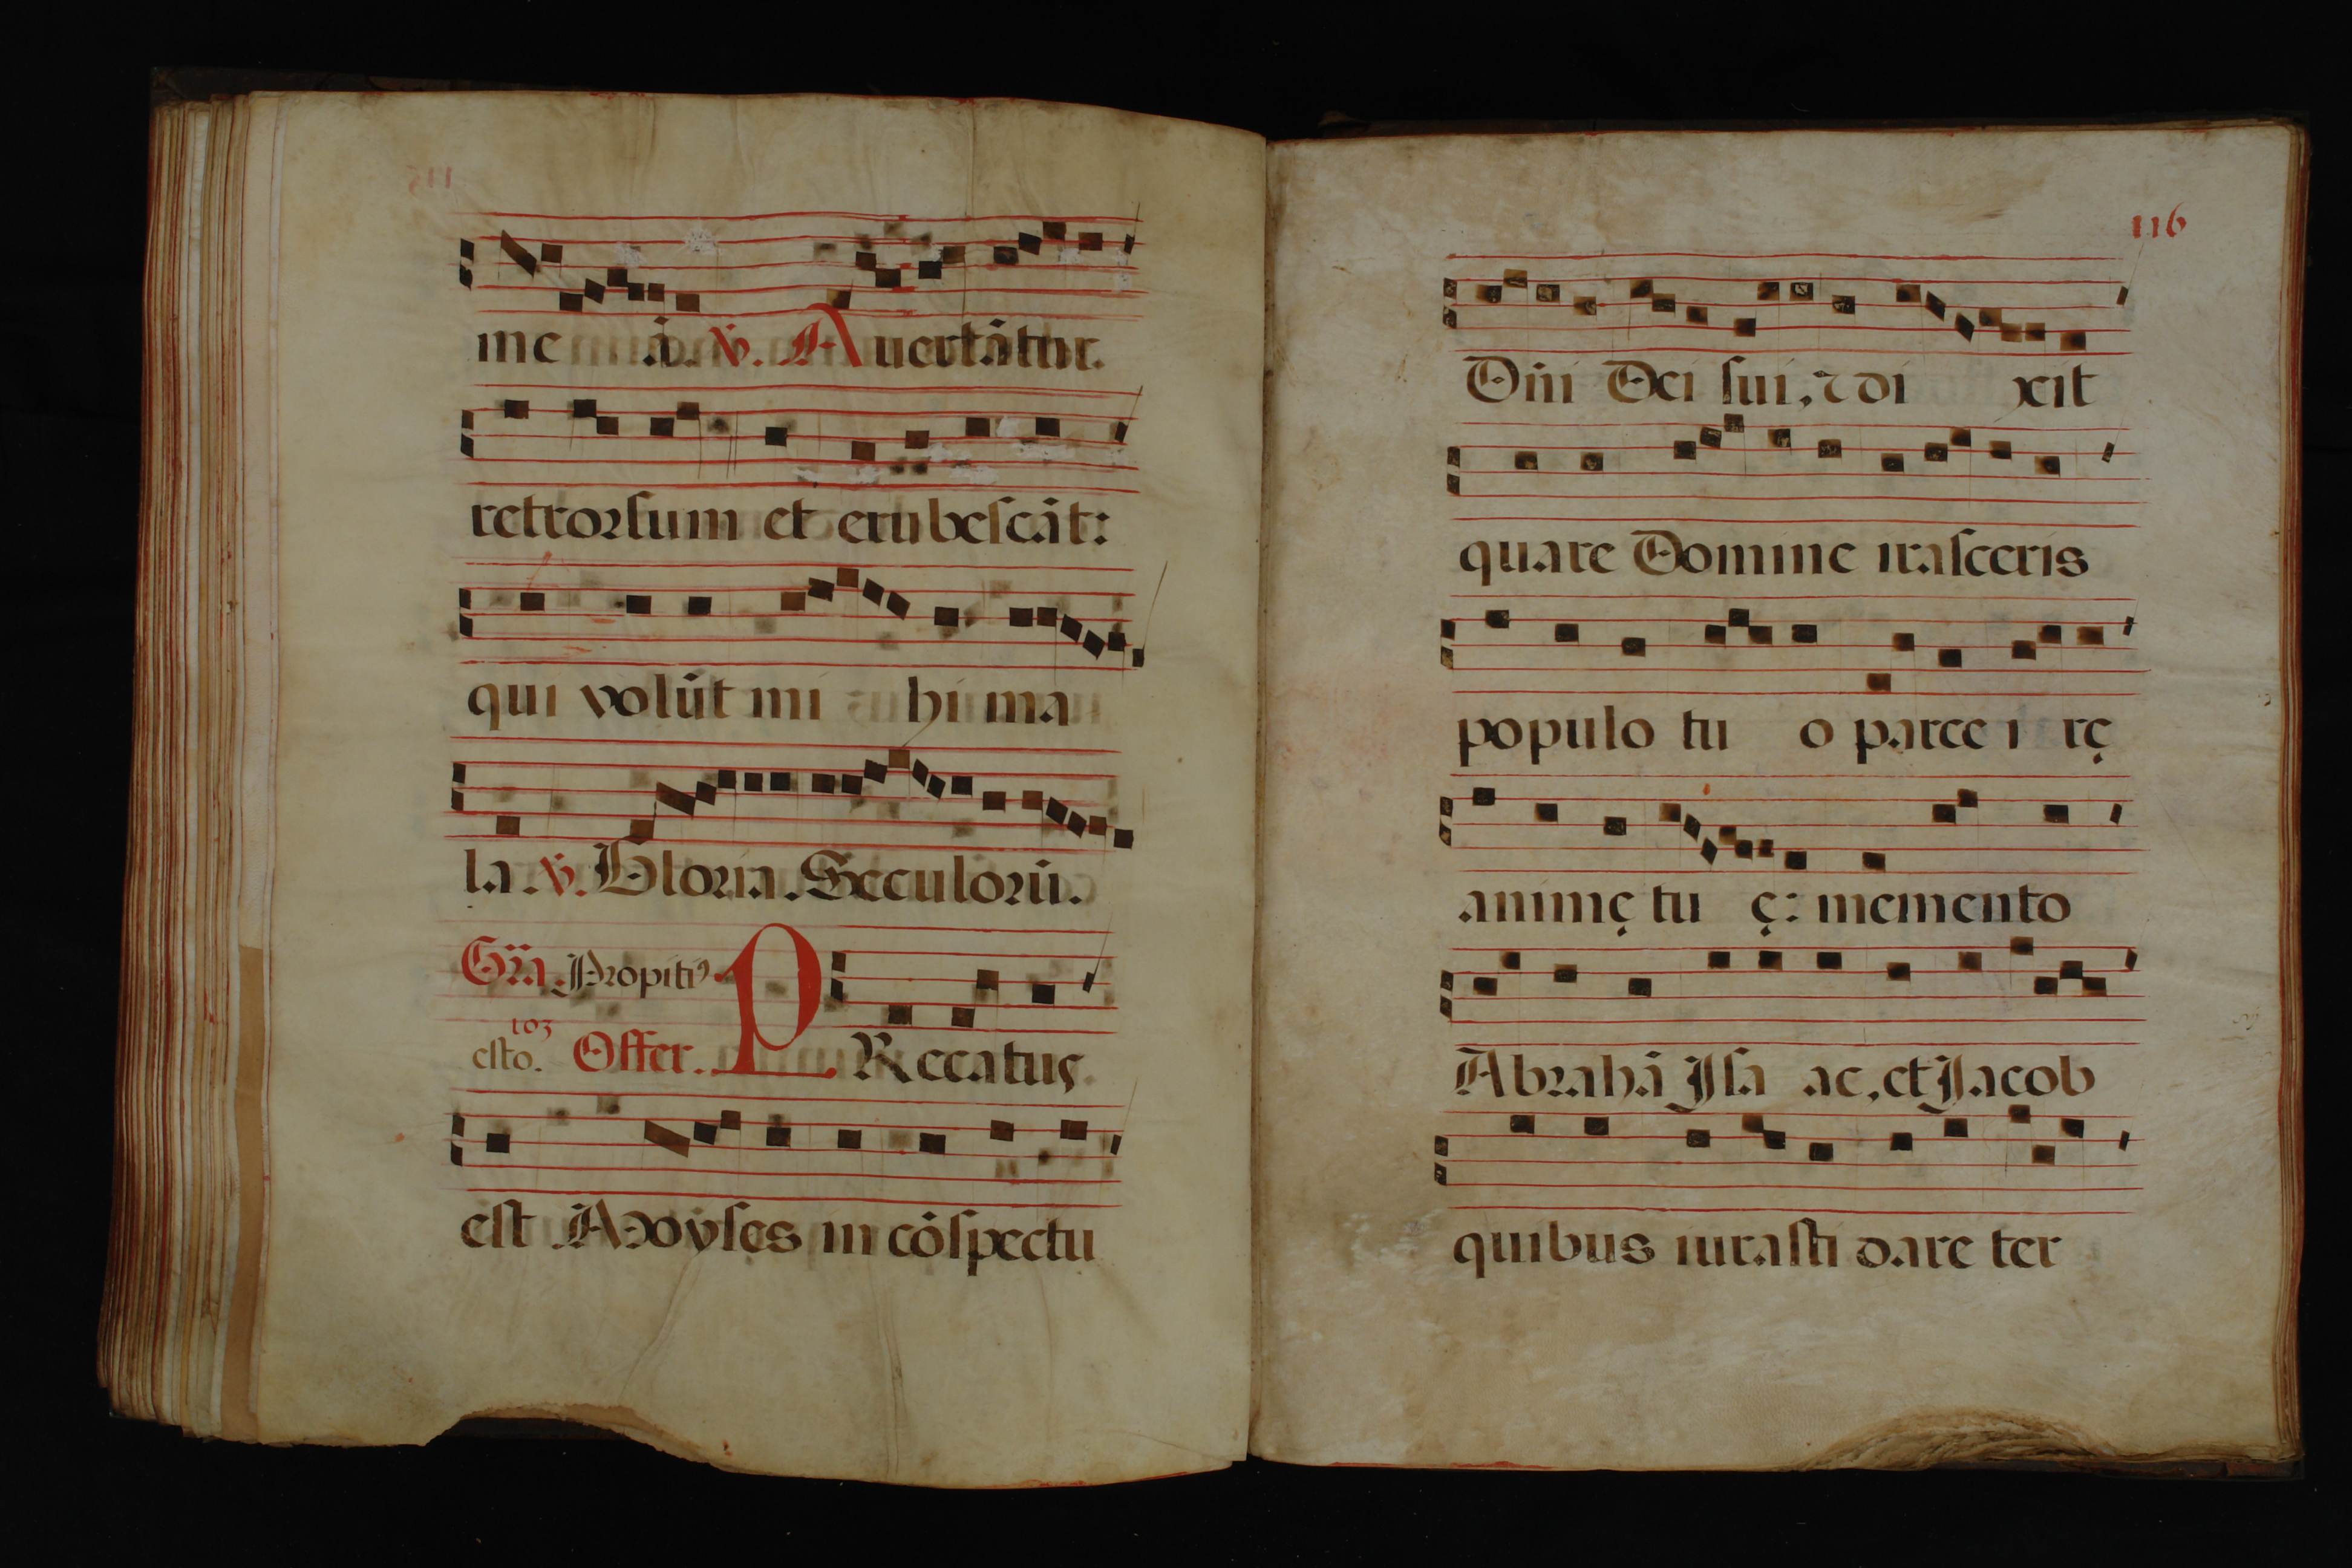 me ā. ℣. Auertātur.
retrorsum et erubescāt:
qui volūt mi hi ma
la. ℣. Gloria. Seculorū.
Gra. Propiti⁹
toꝫ
esto. Offer. PRecatus
est Moyses in cōspectu
116
Dn̄i Dei sui, ⁊ di xit
quare Domine irasceris
populo tu o parce i rę
animę tu ę: memento
Abrahā Isa ac, et Jacob
quibus iurasti dare ter